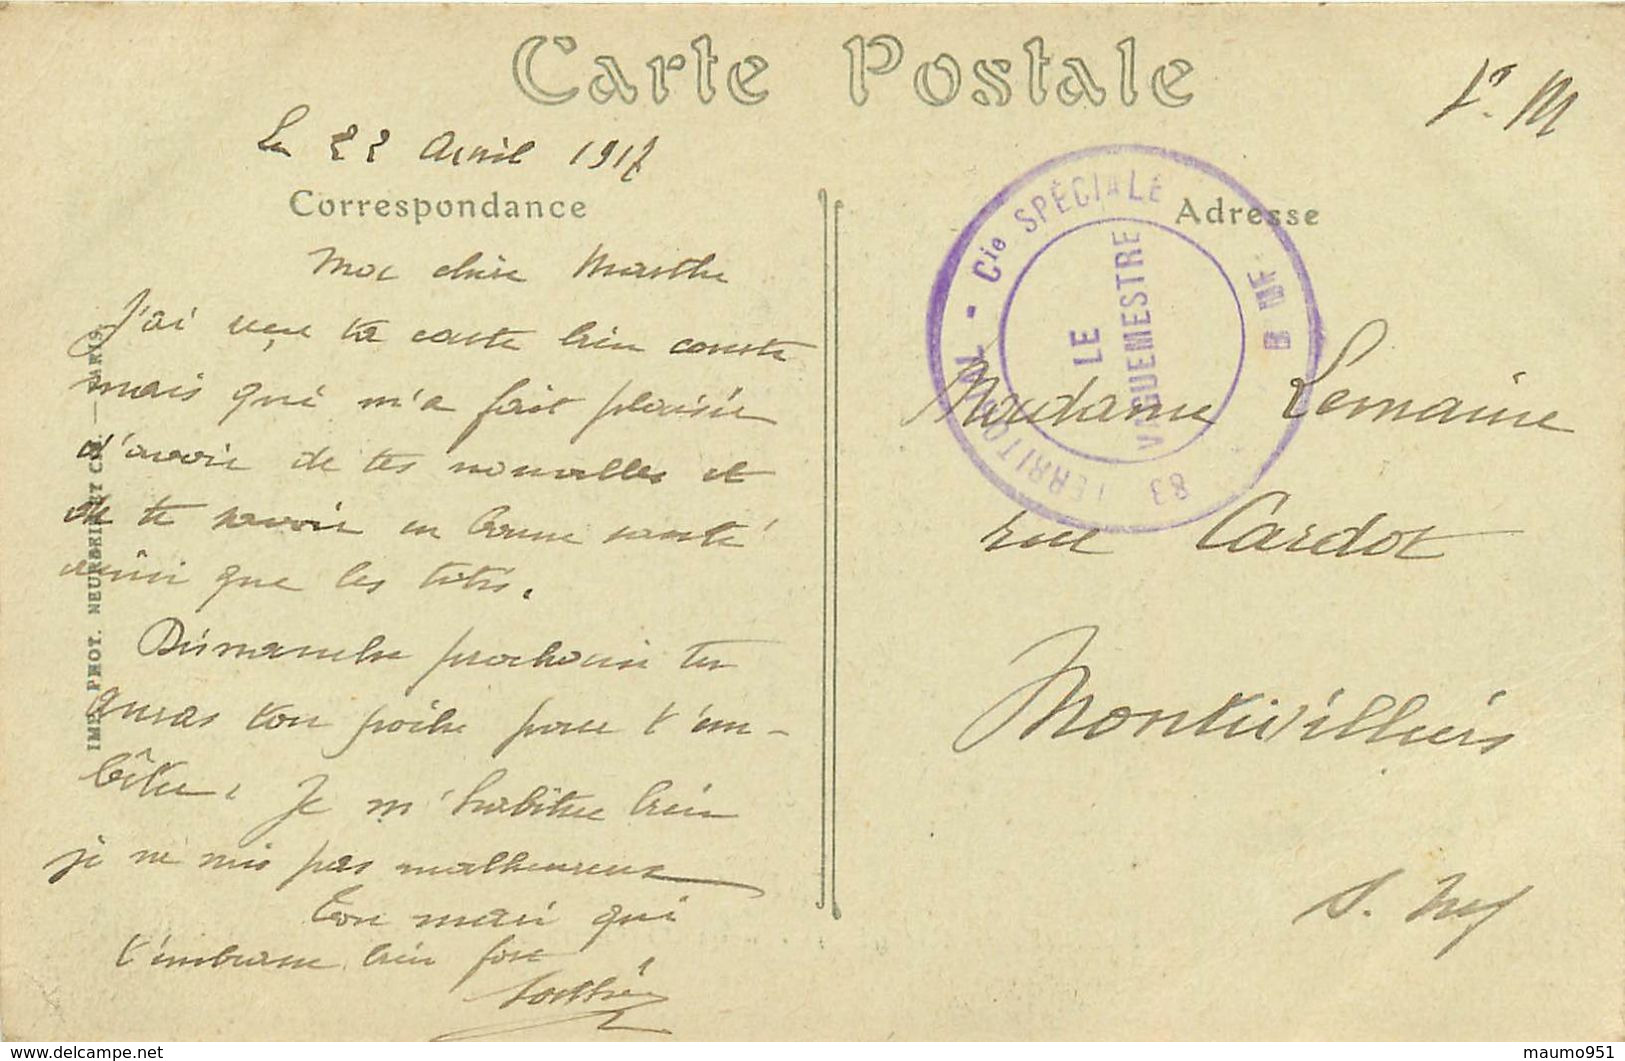 Carte Postale
F. M
Le 22 Avril 1917
Correspondance
Adresse
Ma chère Marthe
J'ai reçu ta carte bien courte
mais qui m'a fait plaisir
d'avoir de tes nouvelles et
de te savoir en bonne santé
ainsi que les titis.
Dimanche prochain tu
auras ton poilu pour t'em-
bêter. Je m'habitue bien
je ne suis pas malheureux
Ton mari qui
t'embrasse bien fort
Madame Lemaire
rue Cardot
Montivilliers
S. Inf
TERRITORIAL - Cie SPÉCIALE
LE
VAGUEMESTRE
83
IMP. PHOT. NEURDEIN ET CIE. — PARIS
www.delcampe.net
maumo951